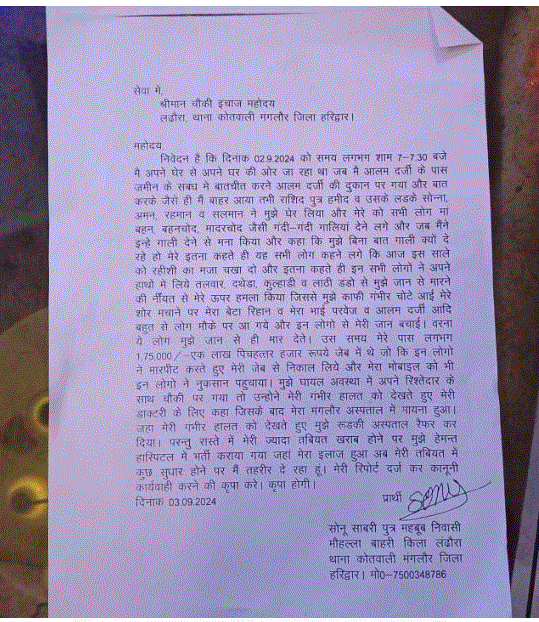 सेवा में,
श्रीमान चौकी इंचाज महोदय
लढौरा, थाना कोतवाली मंगलौर जिला हरिद्वार।
महोदय,
निवेदन है कि दिनांक 02.9.2024 को समय लगभग शाम 7-7.30 बजे
मै अपने घेर से अपने घर की ओर जा रहा था जब मै आलम दर्जी के पास
जमीन के संबध मे बातचीत करने आलम दर्जी की दुकान पर गया और बात
करके जैसे ही मैं बाहर आया तभी राशिद पुत्र हमीद व उसके लडके सोन्ना,
अमन, रहमान व सलमान ने मुझे घेर लिया और मेरे को सभी लोग मां
बहन, बहनचोद, मादरचोद जैसी गंदी-गंदी गालियां देने लगे और जब मैंने
इन्हे गाली देने से मना किया और कहा कि मुझे बिना बात गाली क्यों दे
रहे हो मेरे इतना कहते ही यह सभी लोग कहने लगे कि आज इस साले
को रहीशी का मजा चखा दो और इतना कहते ही इन सभी लोगो ने अपने
हाथो में लिये तलवार, दथेडा, कुल्हाडी व लाठी डंडो से मुझे जान से मारने
की नींयत से मेरे ऊपर हमला किया जिससे मुझे काफी गंभीर चोटे आई मेरे
शोर मचाने पर मेरा बेटा रिहान व मेरा भाई परवेज व आलम दर्जी आदि
बहुत से लोग मौके पर आ गये और इन लोगो से मेरी जान बचाई। वरना
ये लोग मुझे जान से ही मार देते। उस समय मेरे पास लगभग
1,75,000/-एक लाख पिचहत्तर हजार रूपये जेब में थे जो कि इन लोगो
ने मारपीट करते हुए मेरी जेब से निकाल लिये और मेरा मोबाइल को भी
इन लोगो ने नुकसान पहुचाया। मुझे घायल अवस्था में अपने रिश्तेदार के
साथ चौकी पर गया तो उन्होने मेरी गंभीर हालत को देखते हुए मेरी
डाक्टरी के लिए कहा जिसके बाद मेरा मंगलौर अस्पताल में मायना हुआ।
जहा मेरी गंभीर हालत को देखते हुए मुझे रूडकी अस्पताल रेफर कर
दिया। परन्तु रास्ते में मेरी ज्यादा तबियत खराब होने पर मुझे हेमन्त
हास्पिटल में भर्ती कराया गया जहां मेरा इलाज हुआ अब मेरी तबियत में
कुछ सुधार होने पर मैं तहरीर दे रहा हूं। मेरी रिपोर्ट दर्ज कर कानूनी
कार्यवाही करने की कृपा करे। कृपा होगी।
दिनांक 03.09.2024 प्रार्थी sonu
सोनू साबरी पुत्र महबूब निवासी
मौहल्ला बाहरी किला लढौरा
थाना कोतवाली मंगलौर जिला
हरिद्वार। मो0-7500348786